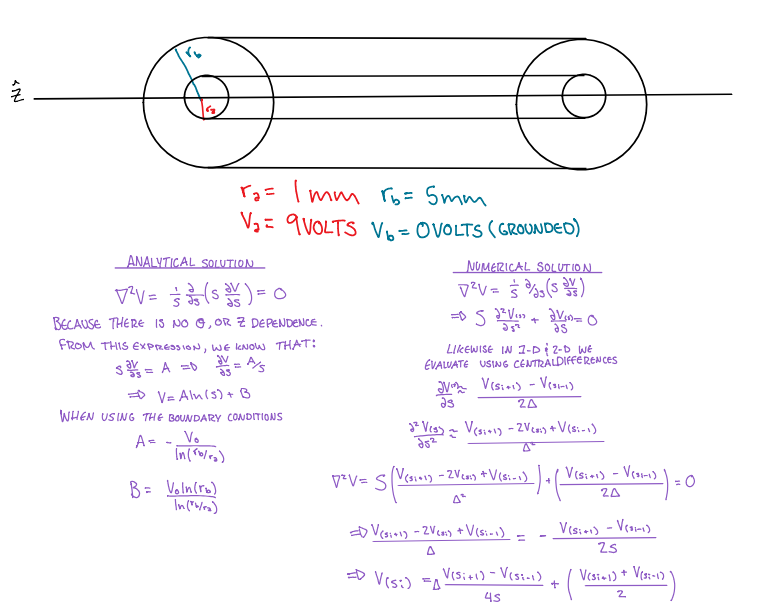 ẑ
r_b
r_a
r_a = 1mm r_b = 5mm
V_a = 9 VOLTS V_b = 0 VOLTS (GROUNDED)
ANALYTICAL SOLUTION
∇²V = 1/S ∂/∂S (S ∂V/∂S) = 0
BECAUSE THERE IS NO Θ, OR Z DEPENDENCE.
FROM THIS EXPRESSION, WE KNOW THAT:
S ∂V/∂S = A ⇒ ∂V/∂S = A/S
⇒ V = A ln(S) + B
WHEN USING THE BOUNDARY CONDITIONS
A = - V₀ / ln(r_b/r_a)
B = V₀ ln(r_b) / ln(r_b/r_a)
NUMERICAL SOLUTION
∇²V = 1/S ∂/∂S (S ∂V/∂S)
⇒ S ∂²V(s)/∂S² + ∂V(s)/∂S = 0
LIKEWISE IN 1-D & 2-D WE
EVALUATE USING CENTRAL DIFFERENCES
∂V(s)/∂S ≈ (V(Si+1) - V(Si-1)) / 2Δ
∂²V(s)/∂S² ≈ (V(Si+1) - 2V(Si) + V(Si-1)) / Δ²
∇²V = S ((V(Si+1) - 2V(Si) + V(Si-1)) / Δ²) + ((V(Si+1) - V(Si-1)) / 2Δ) = 0
⇒ (V(Si+1) - 2V(Si) + V(Si-1)) / Δ = - (V(Si+1) - V(Si-1)) / 2S
⇒ V(Si) = Δ (V(Si+1) - V(Si-1)) / 4S + ((V(Si+1) + V(Si-1)) / 2)